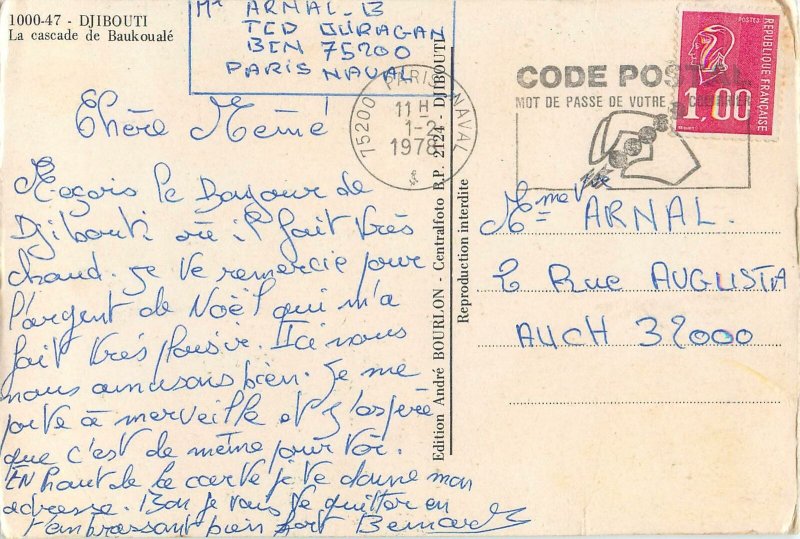 1000-47 - DJIBOUTI
La cascade de Baukoualé
Mr ARNAL. B
TCD OURAGAN
BCN 75200
PARIS NAVAL
Chère Mémé
Reçois le Bonjour de
Djibouti où il fait très
chaud. Je te remercie pour
l'argent de Noël qui m'a
fait très plaisir. Ici nous
nous amusons bien. Je me
porte à merveille et j'espère
que c'est de même pour toi.
EN haut de la carte je te donne mon
adresse. Bon je vais te quitter en
t'embrassant bien fort Bernard
Edition André BOURLON - Centralfoto B.P. 2124 - DJIBOUTI
Reproduction interdite
75200 PARIS NAVAL
11 H
1-2
1978
CODE POSTAL
MOT DE PASSE DE VOTRE COURRIER
POSTES
REPUBLIQUE FRANÇAISE
1,00
Mme Vve
ARNAL.
Rue AUGUSTA
AUCH 32000